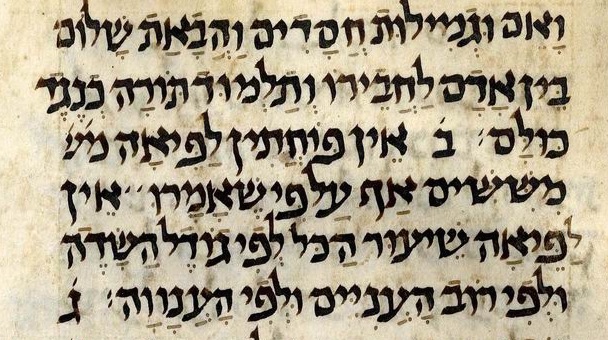 וָאֵם וּגְמִילוּת חֲסָדִים וַהֲבָאַת שָׁלוֹם
בֵּין אָדָם לַחֲבֵירוֹ וְתַלְמוּד תּוֹרָה כְּנֶגֶד
כּוּלָּם׃ ב׳ אֵין פּוֹחֲתִין לַפֵּיאָה מש׳
מִשִּׁשִּׁים אַף עַל פִּי שֶׁאָמְרוּ׳ אֵין
לַפֵּיאָה שִׁיעוּר הַכֹּל לְפִי גוֹדֶל הַשָּׂדֶה
וּלְפִי רוֹב הָעֲנִיִּים וּלְפִי הָעֲנָווָה׃ ג׳